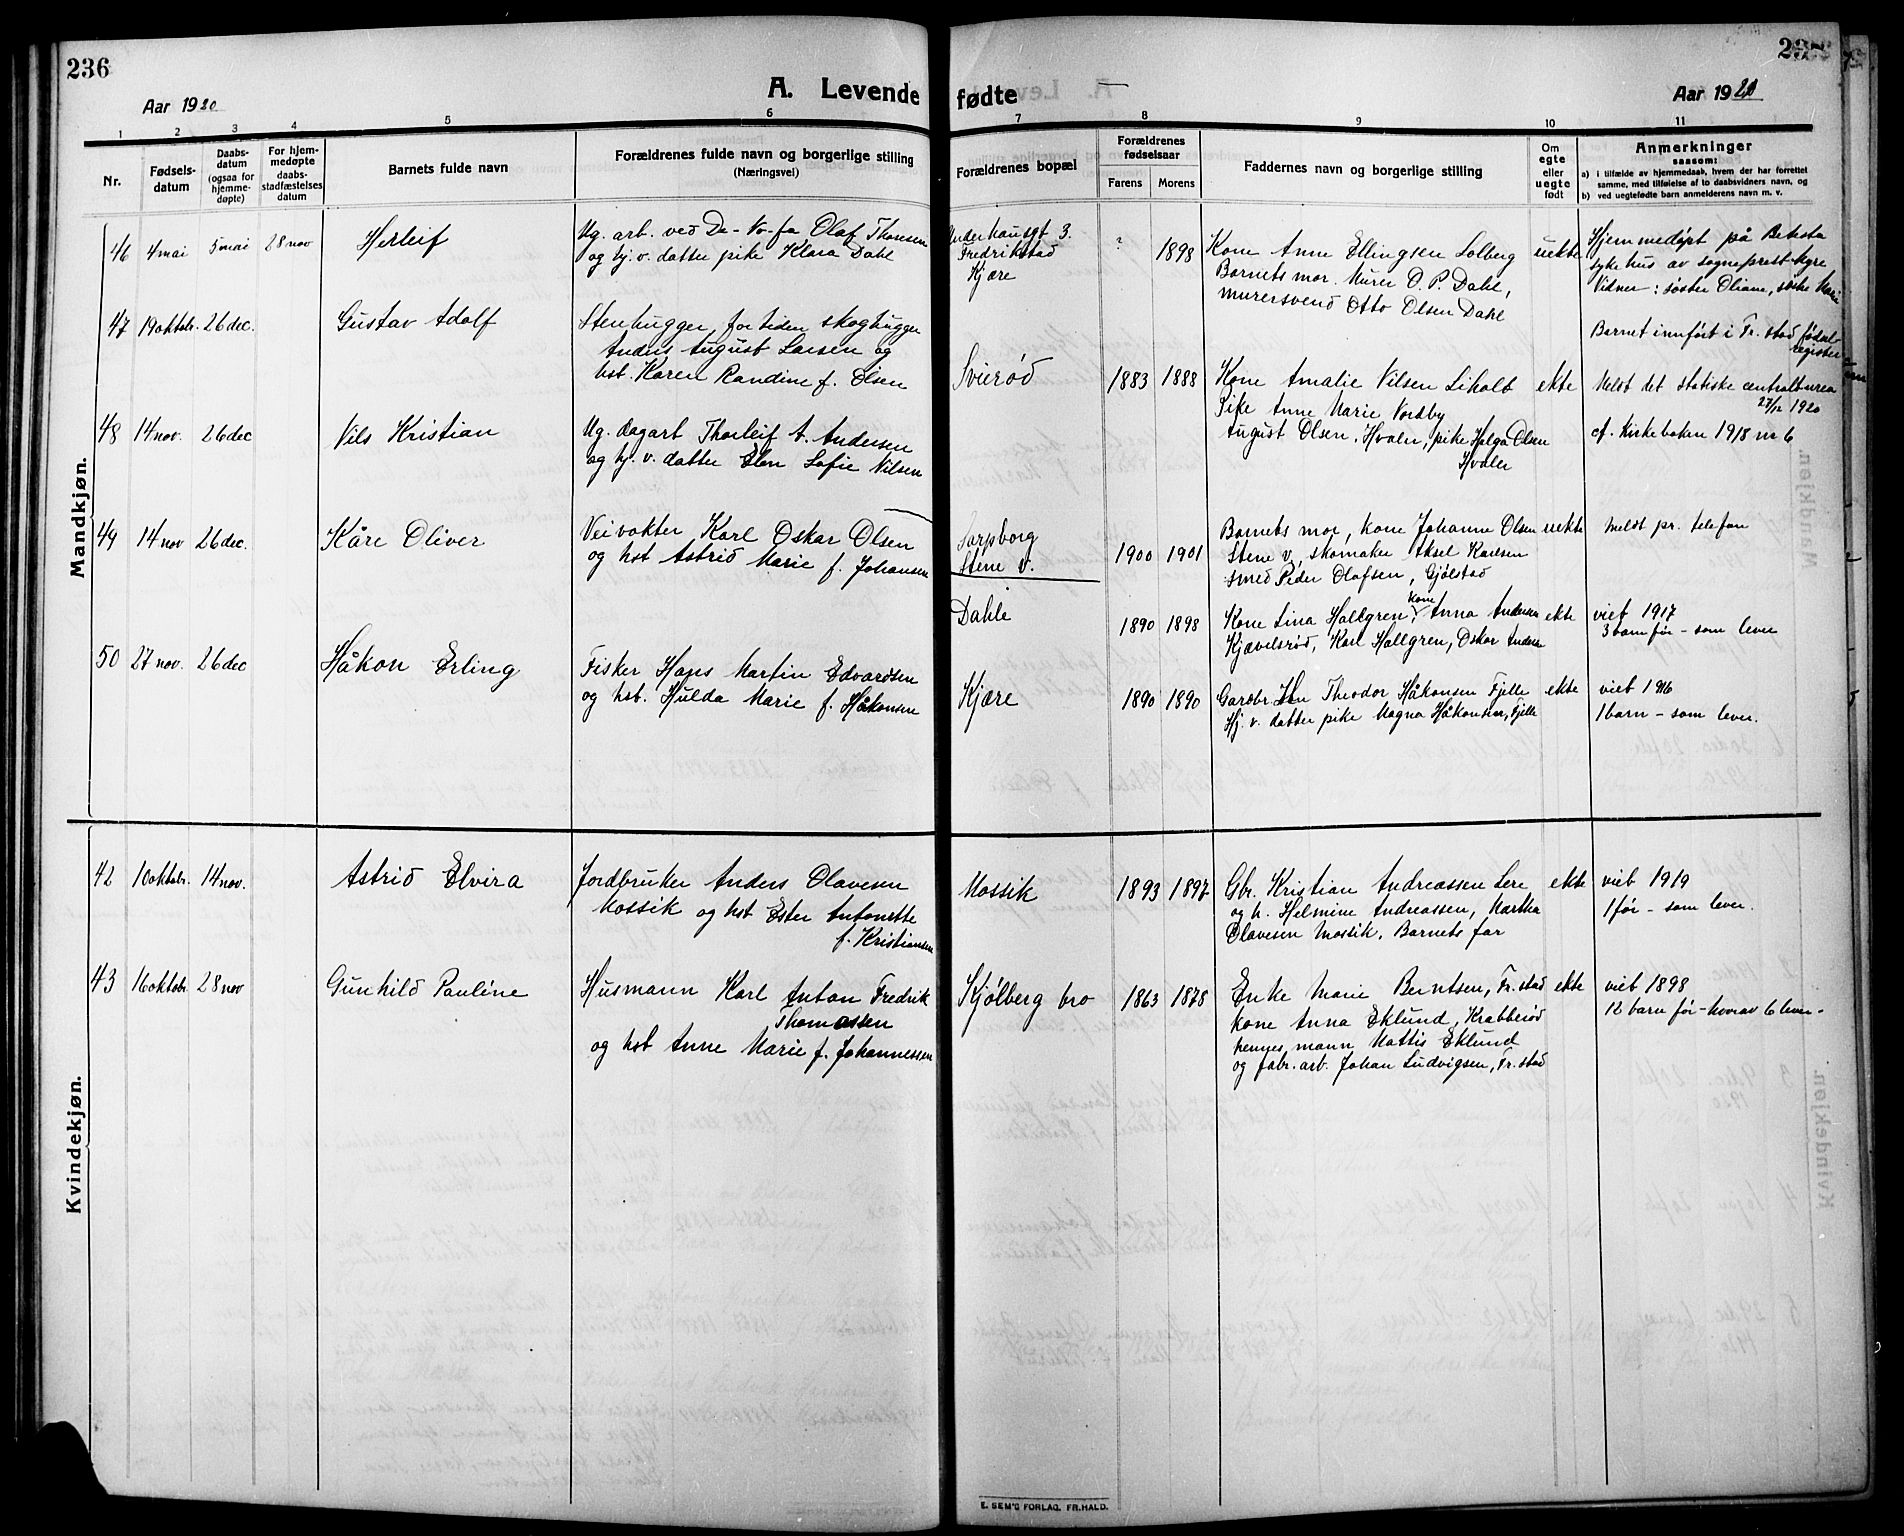 236
Aar 1920
A. Levende
1 2 3 4 5 6
Nr.
Fødsels-
datum
Daabs-
datum
(ogsaa for
hjemme-
døpte)
For hjem-
medøpte
daabs-
stadfæstelses
datum
Barnets fulde navn
Forældrenes fulde navn og borgerlige stilling
(Næringsvei)
Mandkjøn.
46 4 mai 5 mai 28 nov Herleif
Ug. arb. ved De-No-fa Olaf Thoresen
og hj. v. datter pike Klara Dahl
47 19 oktobr. 26 dec. Gustav Adolf
Stenhugger, for tiden skoghugger
Anders August Larsen og
hst. Karen Randine f. Olsen
48 14 nov. 26 dec Nils Kristian
Ug. dagarb Thorleif A. Andersen
og hj. v. datter Elen Sofie Nilsen
49 14 nov 26 dec. Kåre Oliver
Veivokter Karl Oskar Olsen
og hst Astrid Marie f. Johansen
50 27 nov. 26 dec Håkon Erling
Fisker Hans Martin Edvardsen
og hst. Hulda Marie f. Håkonsen
Kvindekjøn.
42 10 oktobr. 14 nov. Astrid Elvira
Jordbruker Anders Olavesen
Mossik og hst Ester Antonette
f. Kristiansen
43 16 oktobr 28 nov Gunhild Pauline
Husmann Karl Anton Fredrik
Thomassen
og hst Anne Marie f. Johannessen
237
fødte
Aar 1920
7 8 9 10 11
Forældrenes bopæl
Forældrenes
fødselsaar
Farens Morens
Faddernes navn og borgerlige stilling
Om
egte
eller
uegte
født
Anmerkninger
saasom:
a) i tilfælde av hjemmedaab, hvem der har forrettet
samme, med tilføielse af to daabsvidners navn, og
b) ved uegtefødte barn anmelderens navn m. v.
Fredrikstad
Kjære
? 1898
Kone Anne Ellingsen Solberg
Barnets mor. Murer O. P. Dahl,
murersvend Otto Olsen Dahl
uekte
Hjemmedøpt på Betesta
sykehus av sogneprest
Vidner: søster Oliane, søster Marie
Barnet innført i Fr.stad fødsel-
register
Svierød 1883 1888
Kone Amalie Nilsen Liholt
Pike Anne Marie Nordby
August Olsen, Hvaler, pike Helga Olsen
Hvaler
ekte
Meldt det statiske centralburea
27/12 1920
cf. Kirkeboken 1918 nr 6
Sarpsborg
Stene v.
1900 1901
Barnets mor, kone Johanne Olsen
Stene v, skomaker Aksel Karlsen
smed Peder Olafsen, Gjølstad
uekte
Meldt pr. telefon
Dahle 1890 1898
Kone Lina Hallgren, kone Anna Andersen
Kjævelsrød, Karl Hallgren, Oskar Andersen
ekte
viet 1917
3 barn før - som lever
Kjære 1890 1890
Gardbr. Theodor Håkonsen Fjelle
Hj. v. datter pike Magna Håkonsen, Fjelle
ekte
viet 1916
1 barn - som lever.
Mossik 1893 1897
Gbr. Kristian Andreassen Lere
og h. Helmine Andreassen, Martha
Olavesen Mossik. Barnets far
ekte
viet 1919
1 før - som lever.
Kjølberg bro 1863 1878
Enke Marie Berntsen, Fr.stad
kone Anna Eklund, Krabberød
hennes mann Mattis Eklund
og fabr. arb. Johan Ludvigsen, Fr.stad
ekte
viet 1898
12 barn før - hvorav 6 lever -
E. SEM'S FORLAG. FR.HALD.